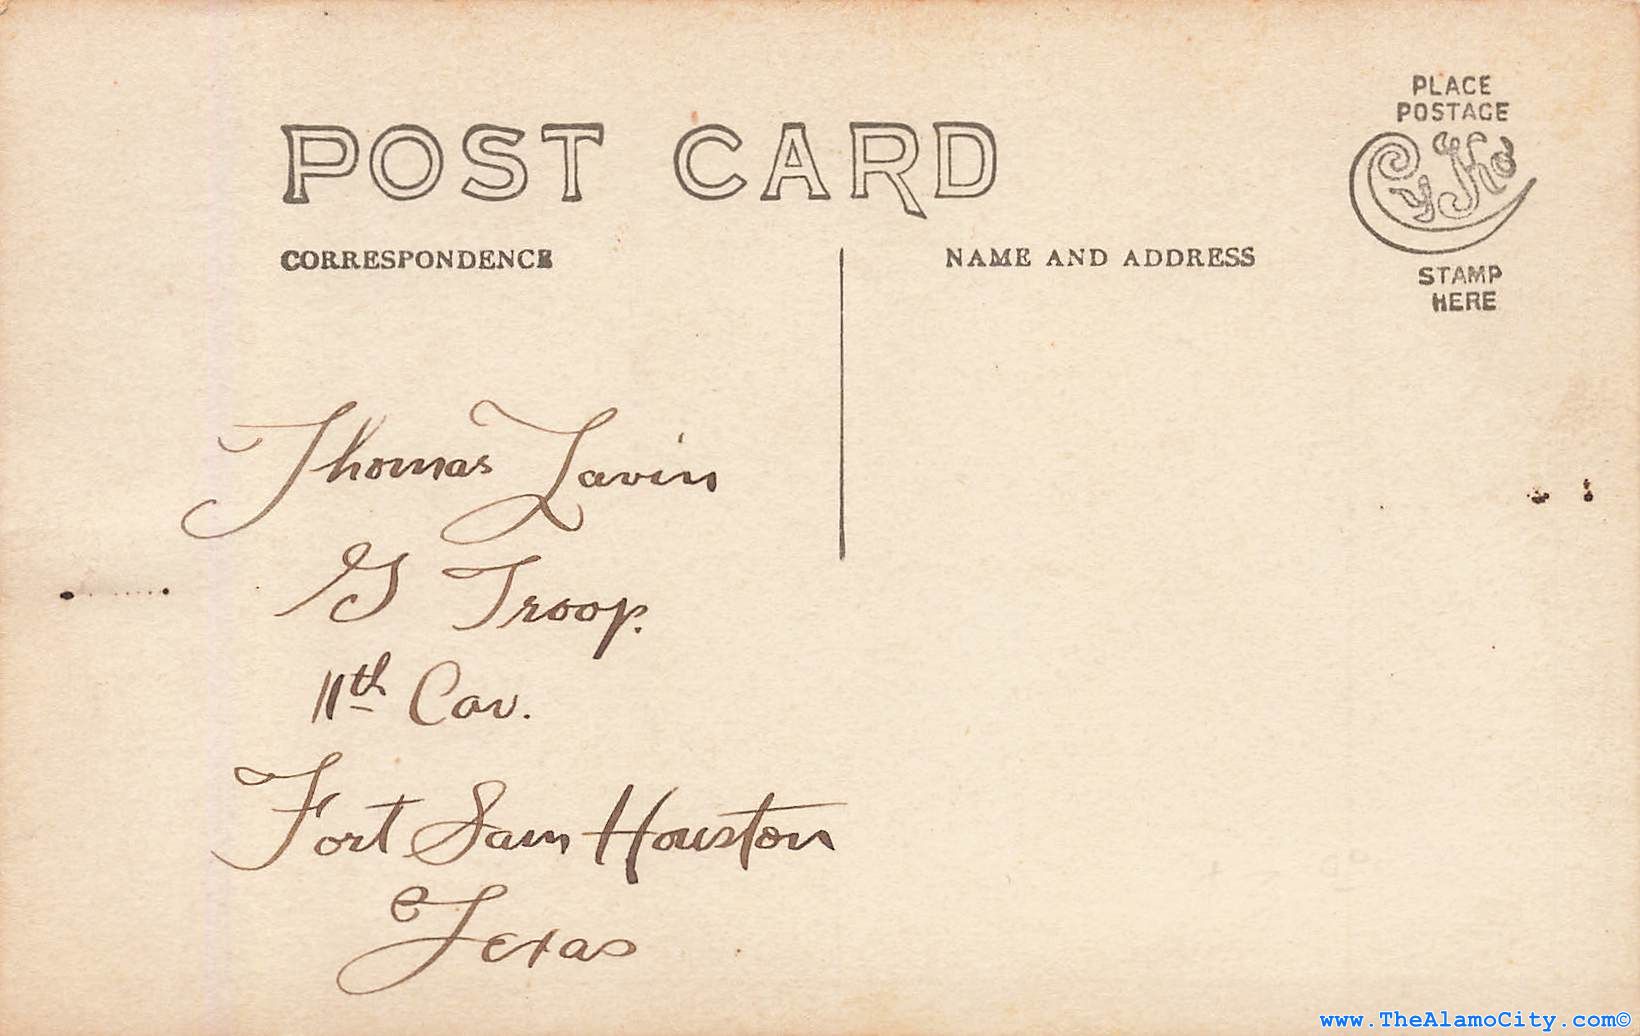 POST CARD
CORRESPONDENCE
NAME AND ADDRESS
PLACE
POSTAGE
CyKo
STAMP
HERE
Thomas Lavin
G Troop.
11th Cav.
Fort Sam Houston
Texas
www.TheAlamoCity.com©